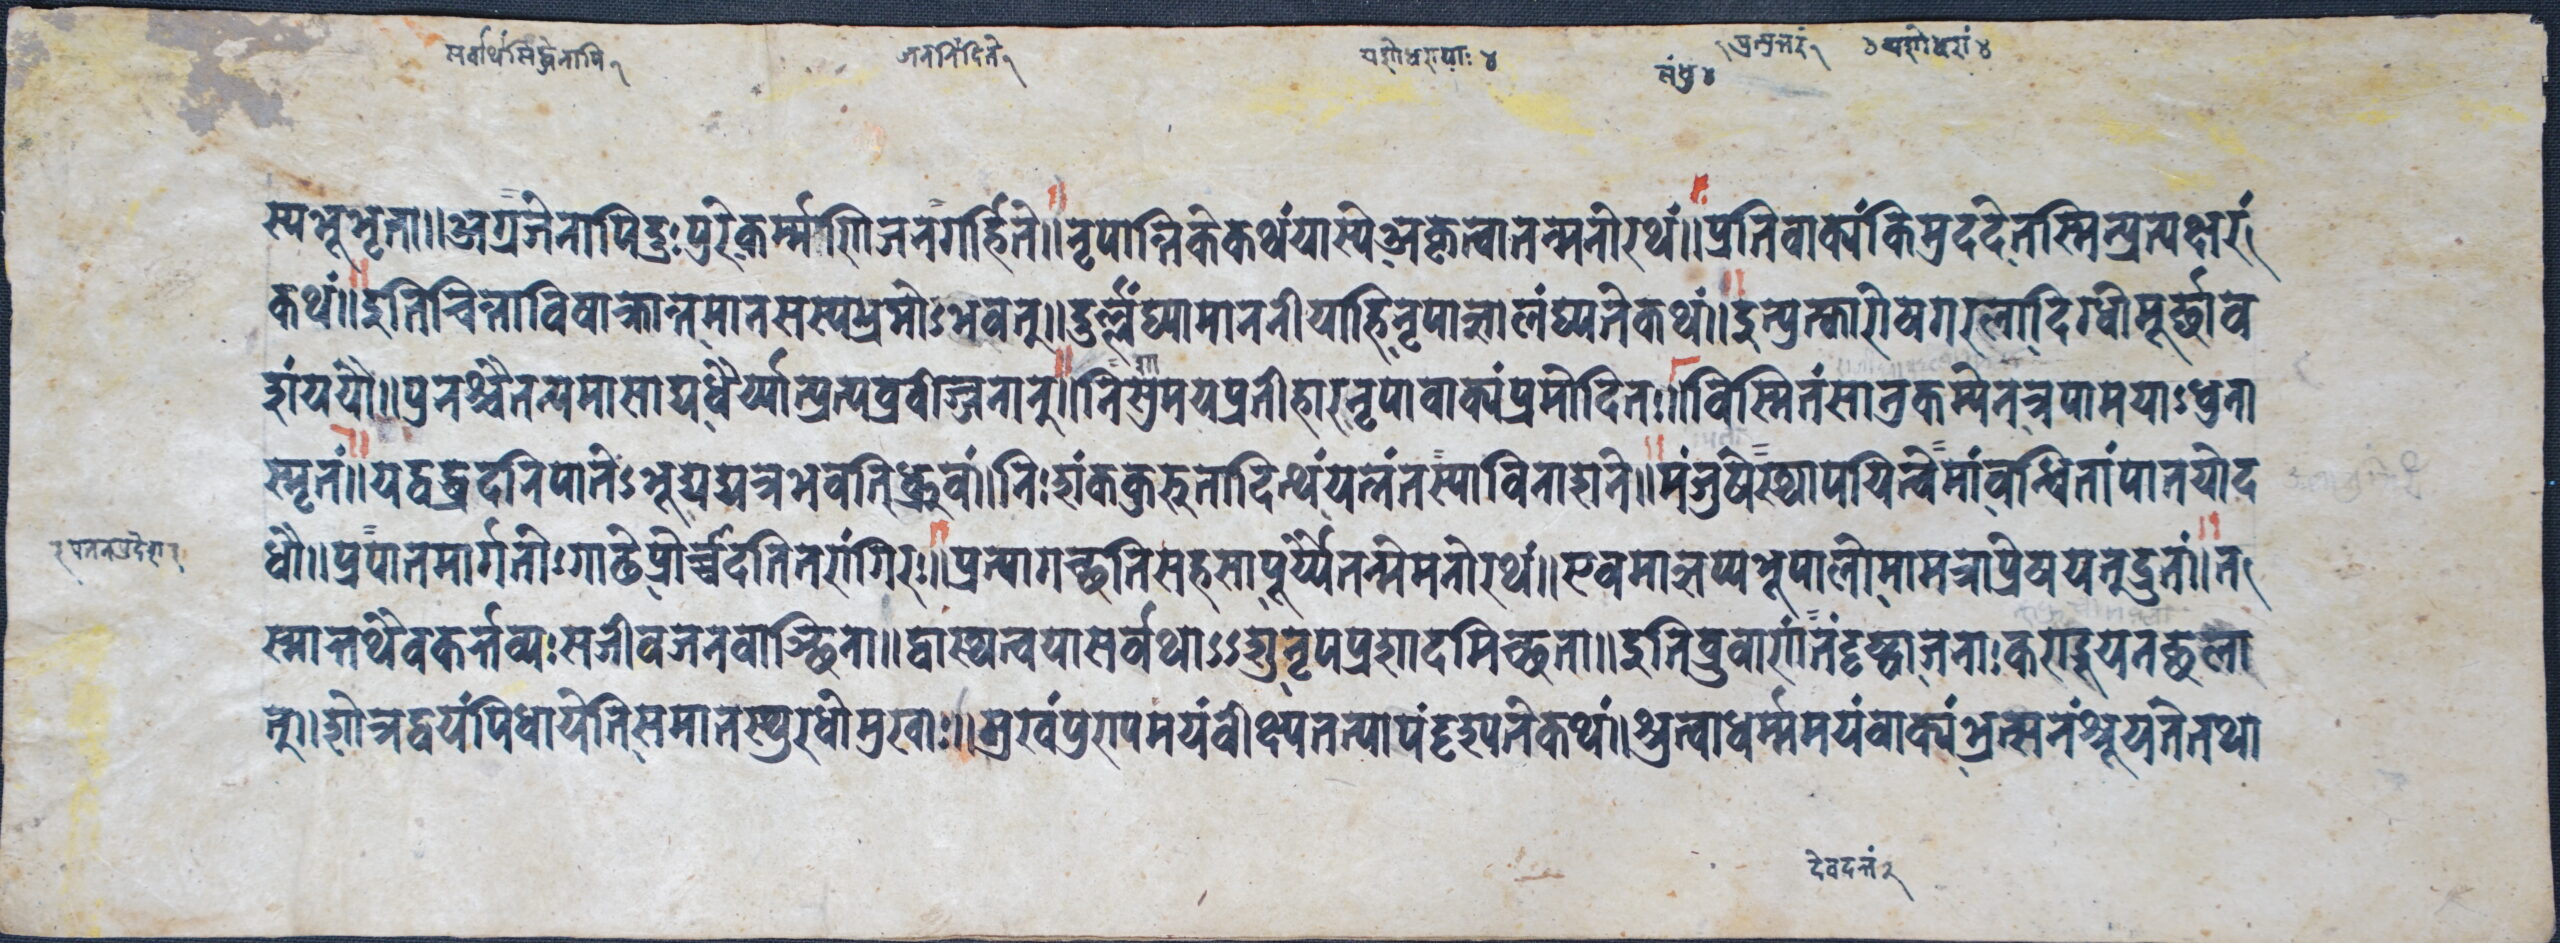 सर्वार्थसिद्धेनापि १ जननिंदिते १ यशोधरायाः ४ लंधु ४ १ प्रत्युत्तरं १ ३ यशोधरां ४
स्यभूभृता॥अग्रजेनापिदुःपुरेकर्म्माणिजनगर्हिते॥नृपान्तिकेकथंयास्येअकृत्वातन्मनोरथं॥प्रतिवाक्यंकिमुददेतस्मिन्प्रत्यक्षर
कथं॥इतिचिन्ताविषाक्रान्तमानसस्यभ्रमोऽभवत्॥दुर्ल्लंघ्यामाननीयाहिनृपाज्ञालंघ्यतेकथं॥इत्युत्कारोषगरलादिग्धोमूर्च्छाव
शंययौ॥पुनश्चैतन्यमासाद्यधैर्य्यात्प्रत्यब्रवीज्जनान्॥निसुमयप्रतीहारनृपावाक्यंप्रमोदितः॥विस्मितंसानुकम्पेनत्रपामयाऽधुना
स्मृतं॥यद्वद्ध्रदनिपातेऽभूद्यद्यत्रभवतिध्रुवं॥निःशंककुरुतादित्थंयत्नंतस्याविनाशने॥मंजुषेस्थापयित्वेमांवन्धितांपातयोद
१ पतनप्रदेश १ धौ॥प्रपातमार्गतोःगाढेप्रोर्च्चदतितरांगिरः॥प्रत्यागच्छतिसहसापूर्य्यैतन्मेमनोरथं॥एवमाज्ञप्यभूपालोमामत्राप्रेषयत्द्रुतं॥त
स्मात्तथैवकर्त्तव्यःसजीवजनवाञ्छिना॥द्वास्थत्वयासर्वथाऽऽशुनृपप्रशादमिच्छता॥इतिब्रुवाणंतंदृष्ट्वाजनाःकराद्वयनच्छला
त्॥श्रोत्रद्वयंपिधायेतिसमातस्थुरधोमुखाः॥मुखंपुरापमयंवीक्ष्यतत्पापंदृश्यतेकथं॥श्रुत्वाधर्म्ममयंवाक्यंभ्रत्सनंश्रूयतेतथा
देवदत्तं २